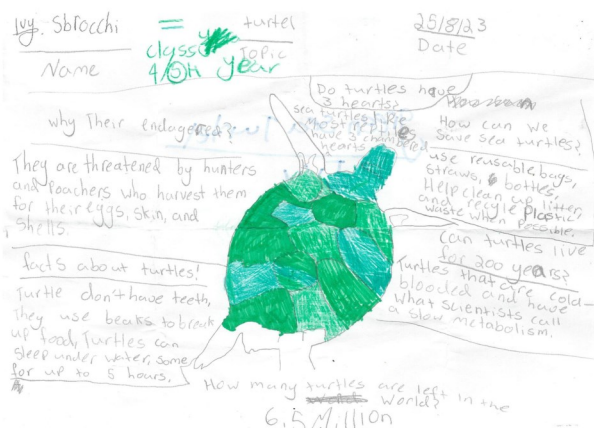 Ivy. Sbrocchi
Name
=
class
4/5th year
turtel
Topic
25/8/23
Date
why Their endagered?
They are threatened by hunters
and Poachers who harvest them
for their eggs, skin, and
shells.
facts about turtles!
Turtle don't have teeth,
They use beaks to break
up food, Turtles can
Sleep under water, some
for up to 5 hours.
Do turtles have
3 hearts?
sea turtles like
Most reptiles
have 3 chambered
hearts
How can we
Save sea turtles?
use reusable bags,
straws, bottles,
Help clean up litter
and recycle Plastic
waste when Peccable.
can turtles live
for 200 years?
Turtles that are cold-
blooded and have
What scientists call
a slow metabolism.
How many turtles are left in the
world?
6.5 Million